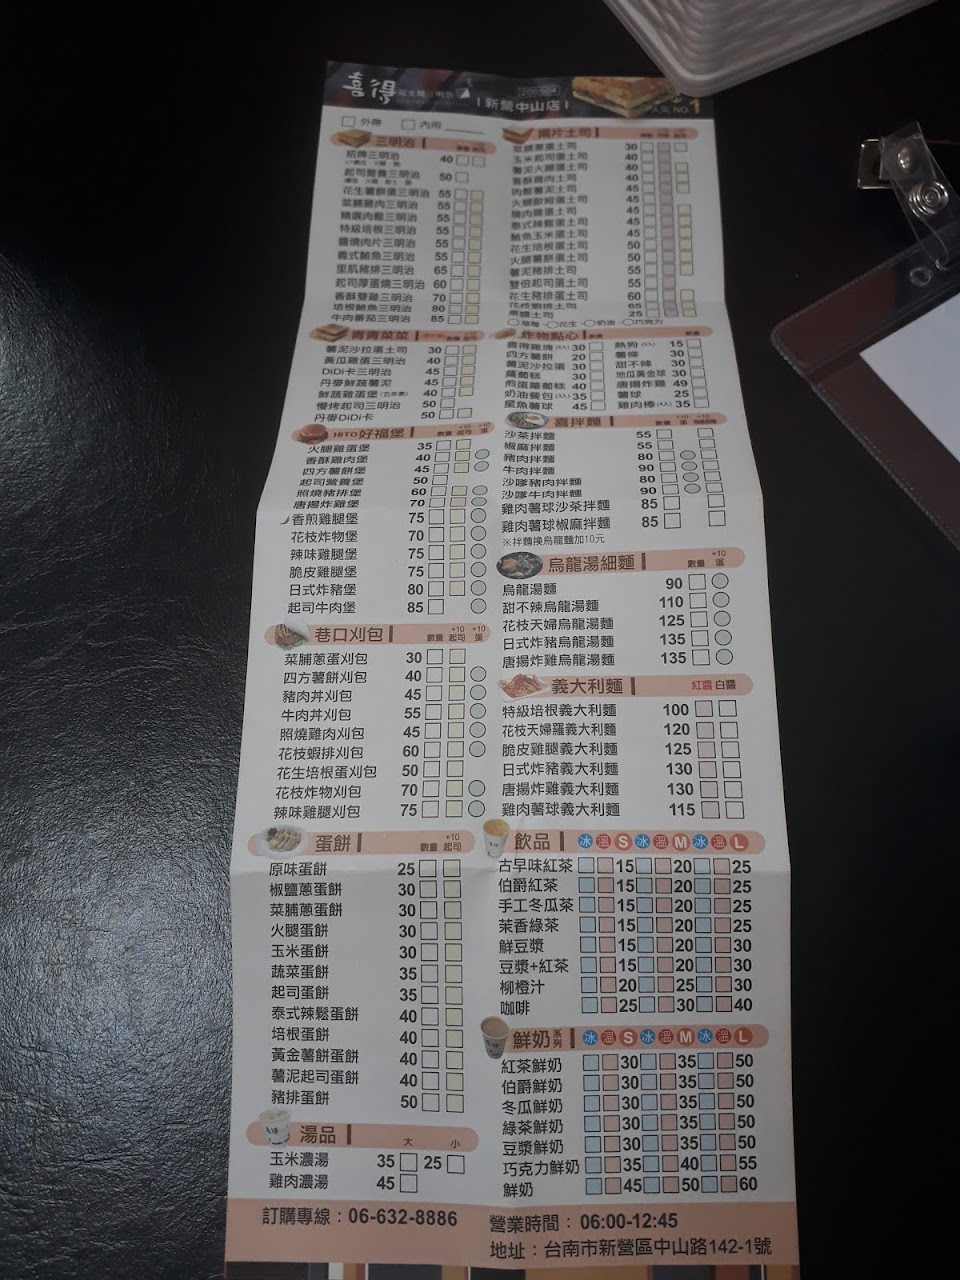 喜得
新營中山店
人氣 NO.1
外帶 內用
三明治
招牌三明治 40
起司營養三明治 50
花生薯餅蛋三明治 55
菜脯雞肉三明治 55
精選肉鬆三明治 55
特級培根三明治 55
醬燒肉片三明治 55
義式鮪魚三明治 55
里肌豬排三明治 65
起司厚蛋燒三明治 60
香酥雙雞三明治 70
培根鮪魚三明治 80
牛肉蕃茄三明治 85
青青菜菜
薯泥沙拉蛋土司 30
黃瓜雞蛋三明治 40
DiDi卡三明治 45
丹麥鮮蔬薯泥 45
鮮蔬雞蛋堡 40
慢烤起司三明治 50
丹麥DiDi卡 50
HITO好福堡 數量 +10起司 +10蛋
火腿雞蛋堡 35
香酥雞肉堡 40
四方薯餅堡 45
起司營養堡 50
照燒豬排堡 60
唐揚炸雞堡 70
香煎雞腿堡 75
花枝炸物堡 70
辣味雞腿堡 75
脆皮雞腿堡 75
日式炸豬堡 80
起司牛肉堡 85
巷口刈包 數量 +10起司 +10蛋
菜脯蔥蛋刈包 30
四方薯餅刈包 40
豬肉丼刈包 45
牛肉丼刈包 55
照燒雞肉刈包 45
花枝蝦排刈包 60
花生培根蛋刈包 50
花枝炸物刈包 70
辣味雞腿刈包 75
蛋餅 數量 +10起司
原味蛋餅 25
椒鹽蔥蛋餅 30
菜脯蔥蛋餅 30
火腿蛋餅 30
玉米蛋餅 30
蔬菜蛋餅 35
起司蛋餅 35
泰式辣鬆蛋餅 40
培根蛋餅 40
黃金薯餅蛋餅 40
薯泥起司蛋餅 40
豬排蛋餅 50
湯品 大 小
玉米濃湯 35 25
雞肉濃湯 45
兩片土司
菜脯蔥蛋土司 30
玉米起司蛋土司 40
薯泥火腿蛋土司 40
香酥雞肉土司 40
肉鬆薯泥土司 45
火腿歐姆蛋土司 45
燒肉雞蛋土司 45
泰式辣鬆蛋土司 45
鮪魚玉米蛋土司 45
花生培根蛋土司 50
火腿薯餅蛋土司 50
薯泥豬排土司 55
雙倍起司蛋土司 50
花生豬排蛋土司 60
花枝蝦排土司 65
果醬土司 25
草莓 花生 奶油 巧克力
炸物點心
喜得雞塊(4入) 30 熱狗(3入) 15
四方薯餅 20 薯條 30
薯泥沙拉蛋 30 甜不辣 30
蘿蔔糕 30 地瓜黃金球 30
煎蛋蘿蔔糕 40 唐揚炸雞 49
奶油餐包(3入) 35 薯球 25
星魚薯球 45 雞肉棒(4入) 35
喜拌麵
沙茶拌麵 55
椒麻拌麵 55
豬肉拌麵 80
牛肉拌麵 90
沙嗲豬肉拌麵 80
沙嗲牛肉拌麵 90
雞肉薯球沙茶拌麵 85
雞肉薯球椒麻拌麵 85
※拌麵換烏龍麵加10元
烏龍湯細麵 數量 +10蛋
烏龍湯麵 90
甜不辣烏龍湯麵 110
花枝天婦烏龍湯麵 125
日式炸豬烏龍湯麵 135
唐揚炸雞烏龍湯麵 135
義大利麵 紅醬 白醬
特級培根義大利麵 100
花枝天婦羅義大利麵 120
脆皮雞腿義大利麵 125
日式炸豬義大利麵 130
唐揚炸雞義大利麵 130
雞肉薯球義大利麵 115
飲品 冰 溫 S 冰 溫 M 冰 溫 L
古早味紅茶 15 20 25
伯爵紅茶 15 20 25
手工冬瓜茶 15 20 25
茉香綠茶 15 20 25
鮮豆漿 15 20 30
豆漿+紅茶 15 20 30
柳橙汁 20 25 30
咖啡 25 30 40
鮮奶系列 冰 溫 S 冰 溫 M 冰 溫 L
紅茶鮮奶 30 35 50
伯爵鮮奶 30 35 50
冬瓜鮮奶 30 35 50
綠茶鮮奶 30 35 50
豆漿鮮奶 30 35 50
巧克力鮮奶 35 40 55
鮮奶 45 50 60
訂購專線：06-632-8886
營業時間：06:00-12:45
地址：台南市新營區中山路142-1號